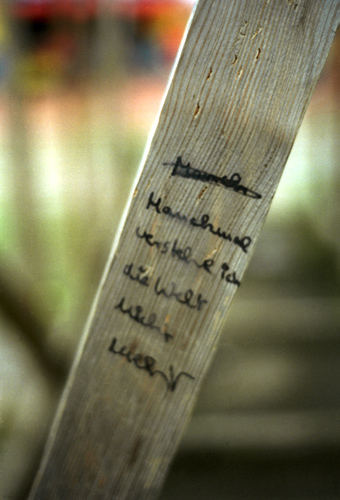 Manchmal
verstehe ich
die Welt
nicht
mehr